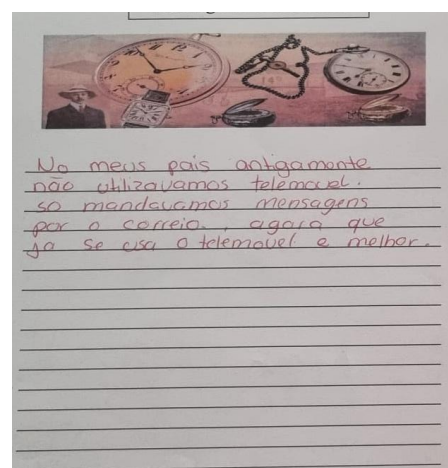 No meus pais antigamente
não utilizavamos telemovel.
so mandavamos mensagens
por o correio., agora que
ja se usa o telemovel e melhor.